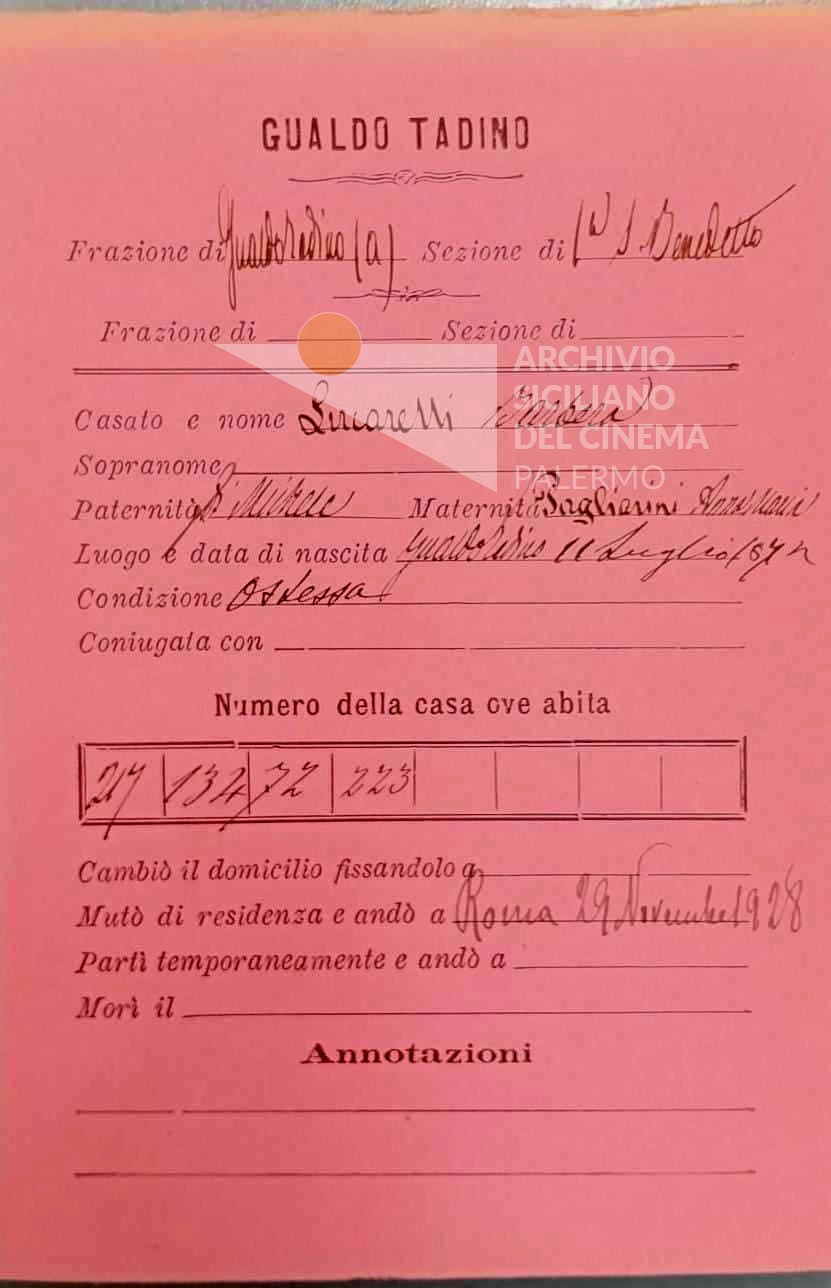 GUALDO TADINO
Frazione di Gualdo Tadino (a) Sezione di S. Benedetto
Frazione di Sezione di
ARCHIVIO
SICILIANO
DEL CINEMA
PALERMO
Casato e nome Lucarelli Barbera
Sopranome
Paternità di Michele Maternità Paglierini Anna Maria
Luogo e data di nascita Gualdo Tadino 11 Luglio
Condizione Ostessa
Coniugata con
Numero della casa ove abita
217 134 72 223
Cambiò il domicilio fissandolo a
Mutò di residenza e andò a Roma 29 Novembre 1928
Partì temporaneamente e andò a
Morì il
Annotazioni